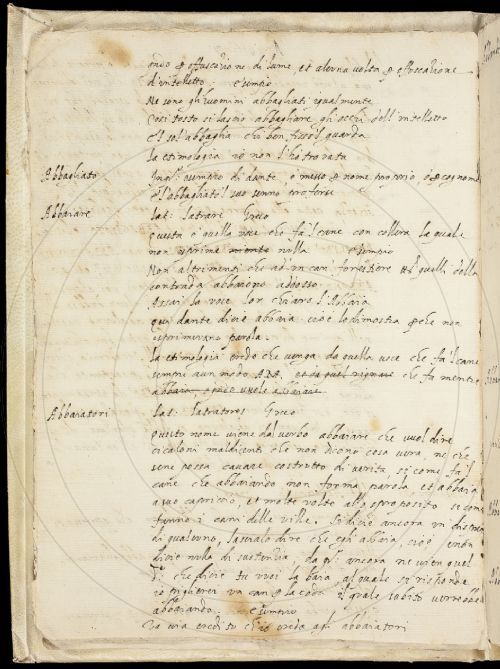 ondo p offuscatione di lume, et alcuna volta p offuscatione
d'intelletto essempio
Ne sono gli huomini abbagliati igualmente
Cosi tosto si lascio abbagliare gli occhi dell'intelletto
e'l sol abbaglia chi ben fisso'l guarda
la etimologia io non l'ho trovata
Abbagliato
di dante è messo p nome proprio, o p cognome
e l'abbagliato'l suo senno proferse
Abbaiare
Lat: latrare Greco
questa è quella voce che fa'l cane con collera la quale
non isprime niente nulla essempio
Non altrimenti che ad un can forestiere quelli della
contrada abbaiono addosso
Assai la voce lor chiaro l'abbaia
qui dante dicie abbaia cioè lo dimostra pche non
esprimevano parola.
la etimologia credo che venga da quella voce che fa'l cane
sempre a un modo che fa mentre
abbaia
Abbaiatori
Lat: latratores Greco
questo nome viene dal verbo abbaiare che vuol dire
cicaloni maldicenti che non dicono cosa vera, ne che
sene possa cavare costrutto di verità si come fa'l
cane che abbaiando non forma parola et abbaia
a suo capriccio, et molte volte allo sproposito si come
fanno i cani delle ville. Si dicie ancora in
di qualcuno, lascialo dire che egli abbaia, cioè
dicie nulla di sustentia, da qui ancora ne vien quel
che dicie tu vuoi la baia, al quale si risponda
io piglierei un can p la coda il quale subito vorrebbe
abbaiando. essempio
Va via credi tu ch'io creda agli abbaiatori